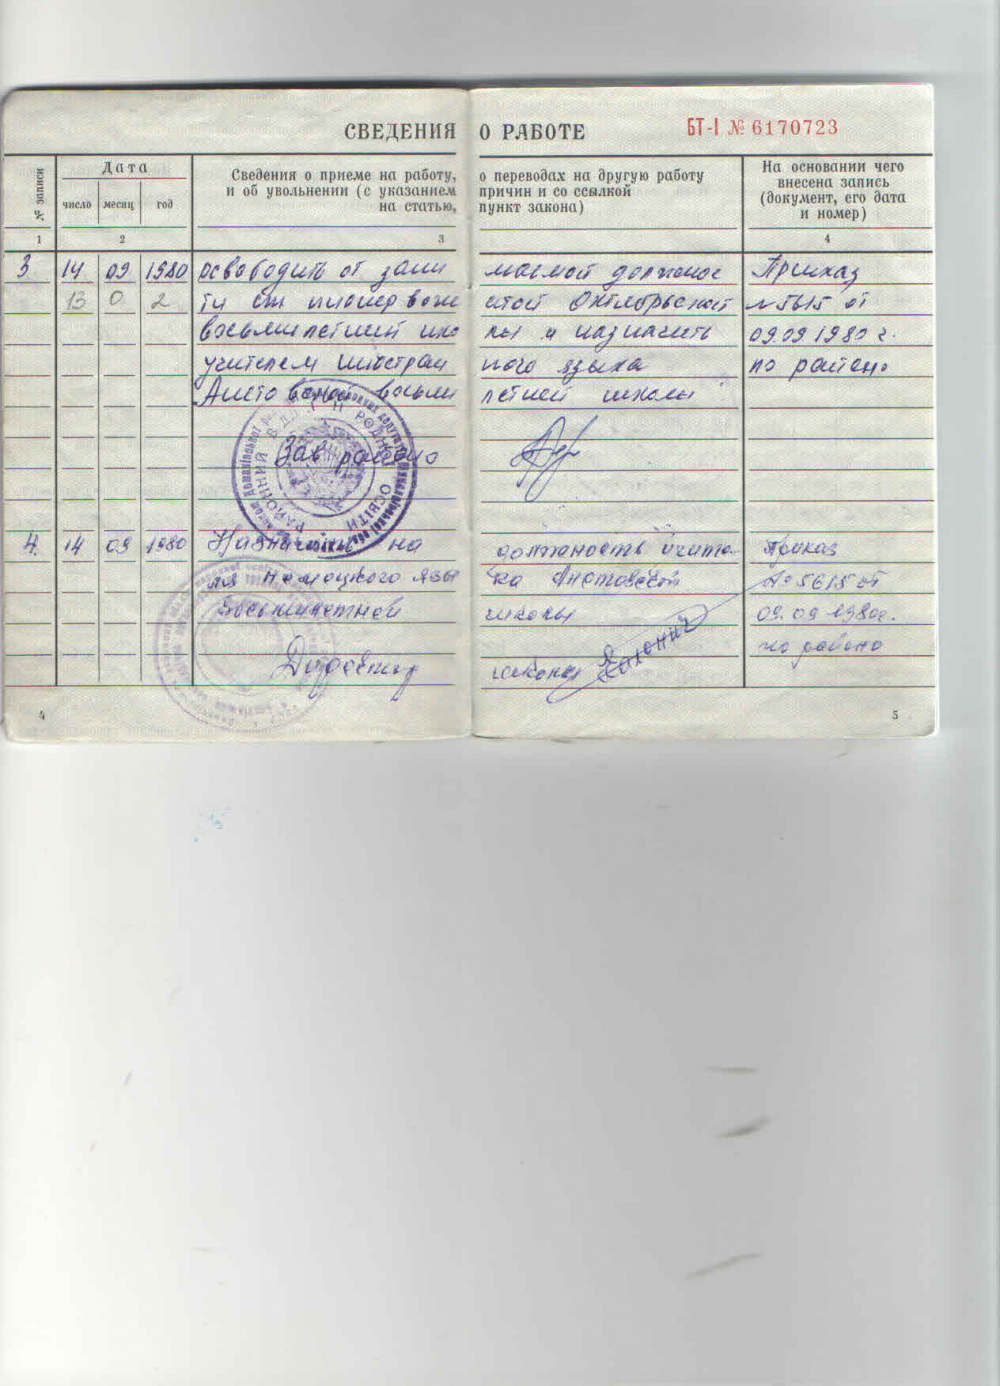 СВЕДЕНИЯ О РАБОТЕ БТ-I № 6170723
№ записи
Дата
число месяц год
Сведения о приеме на работу, о переводах на другую работу
и об увольнении (с указанием причин и со ссылкой
на статью, пункт закона)
На основании чего
внесена запись
(документ, его дата
и номер)
1 2 3 4
3 14 09 1980 освободить от зани маемой должнос Приказ
13 0 2 ти ст. пионер вожа атой Октябрьской №5615 от
восьмилетней шко лы и назначить 09.09.1980 г.
учителем иностран ного языка по районо
восьми летней школы
Зав районо
РАЙОННИЙ ВІДДІЛ НАРОДНОЇ ОСВІТИ
4. 14 09 1980 Назначить на должность учите- Приказ
ля немецкого язы ка №5615 от
восьмилетней школы 09.09.1980г.
по районо
Директор школы
4 5